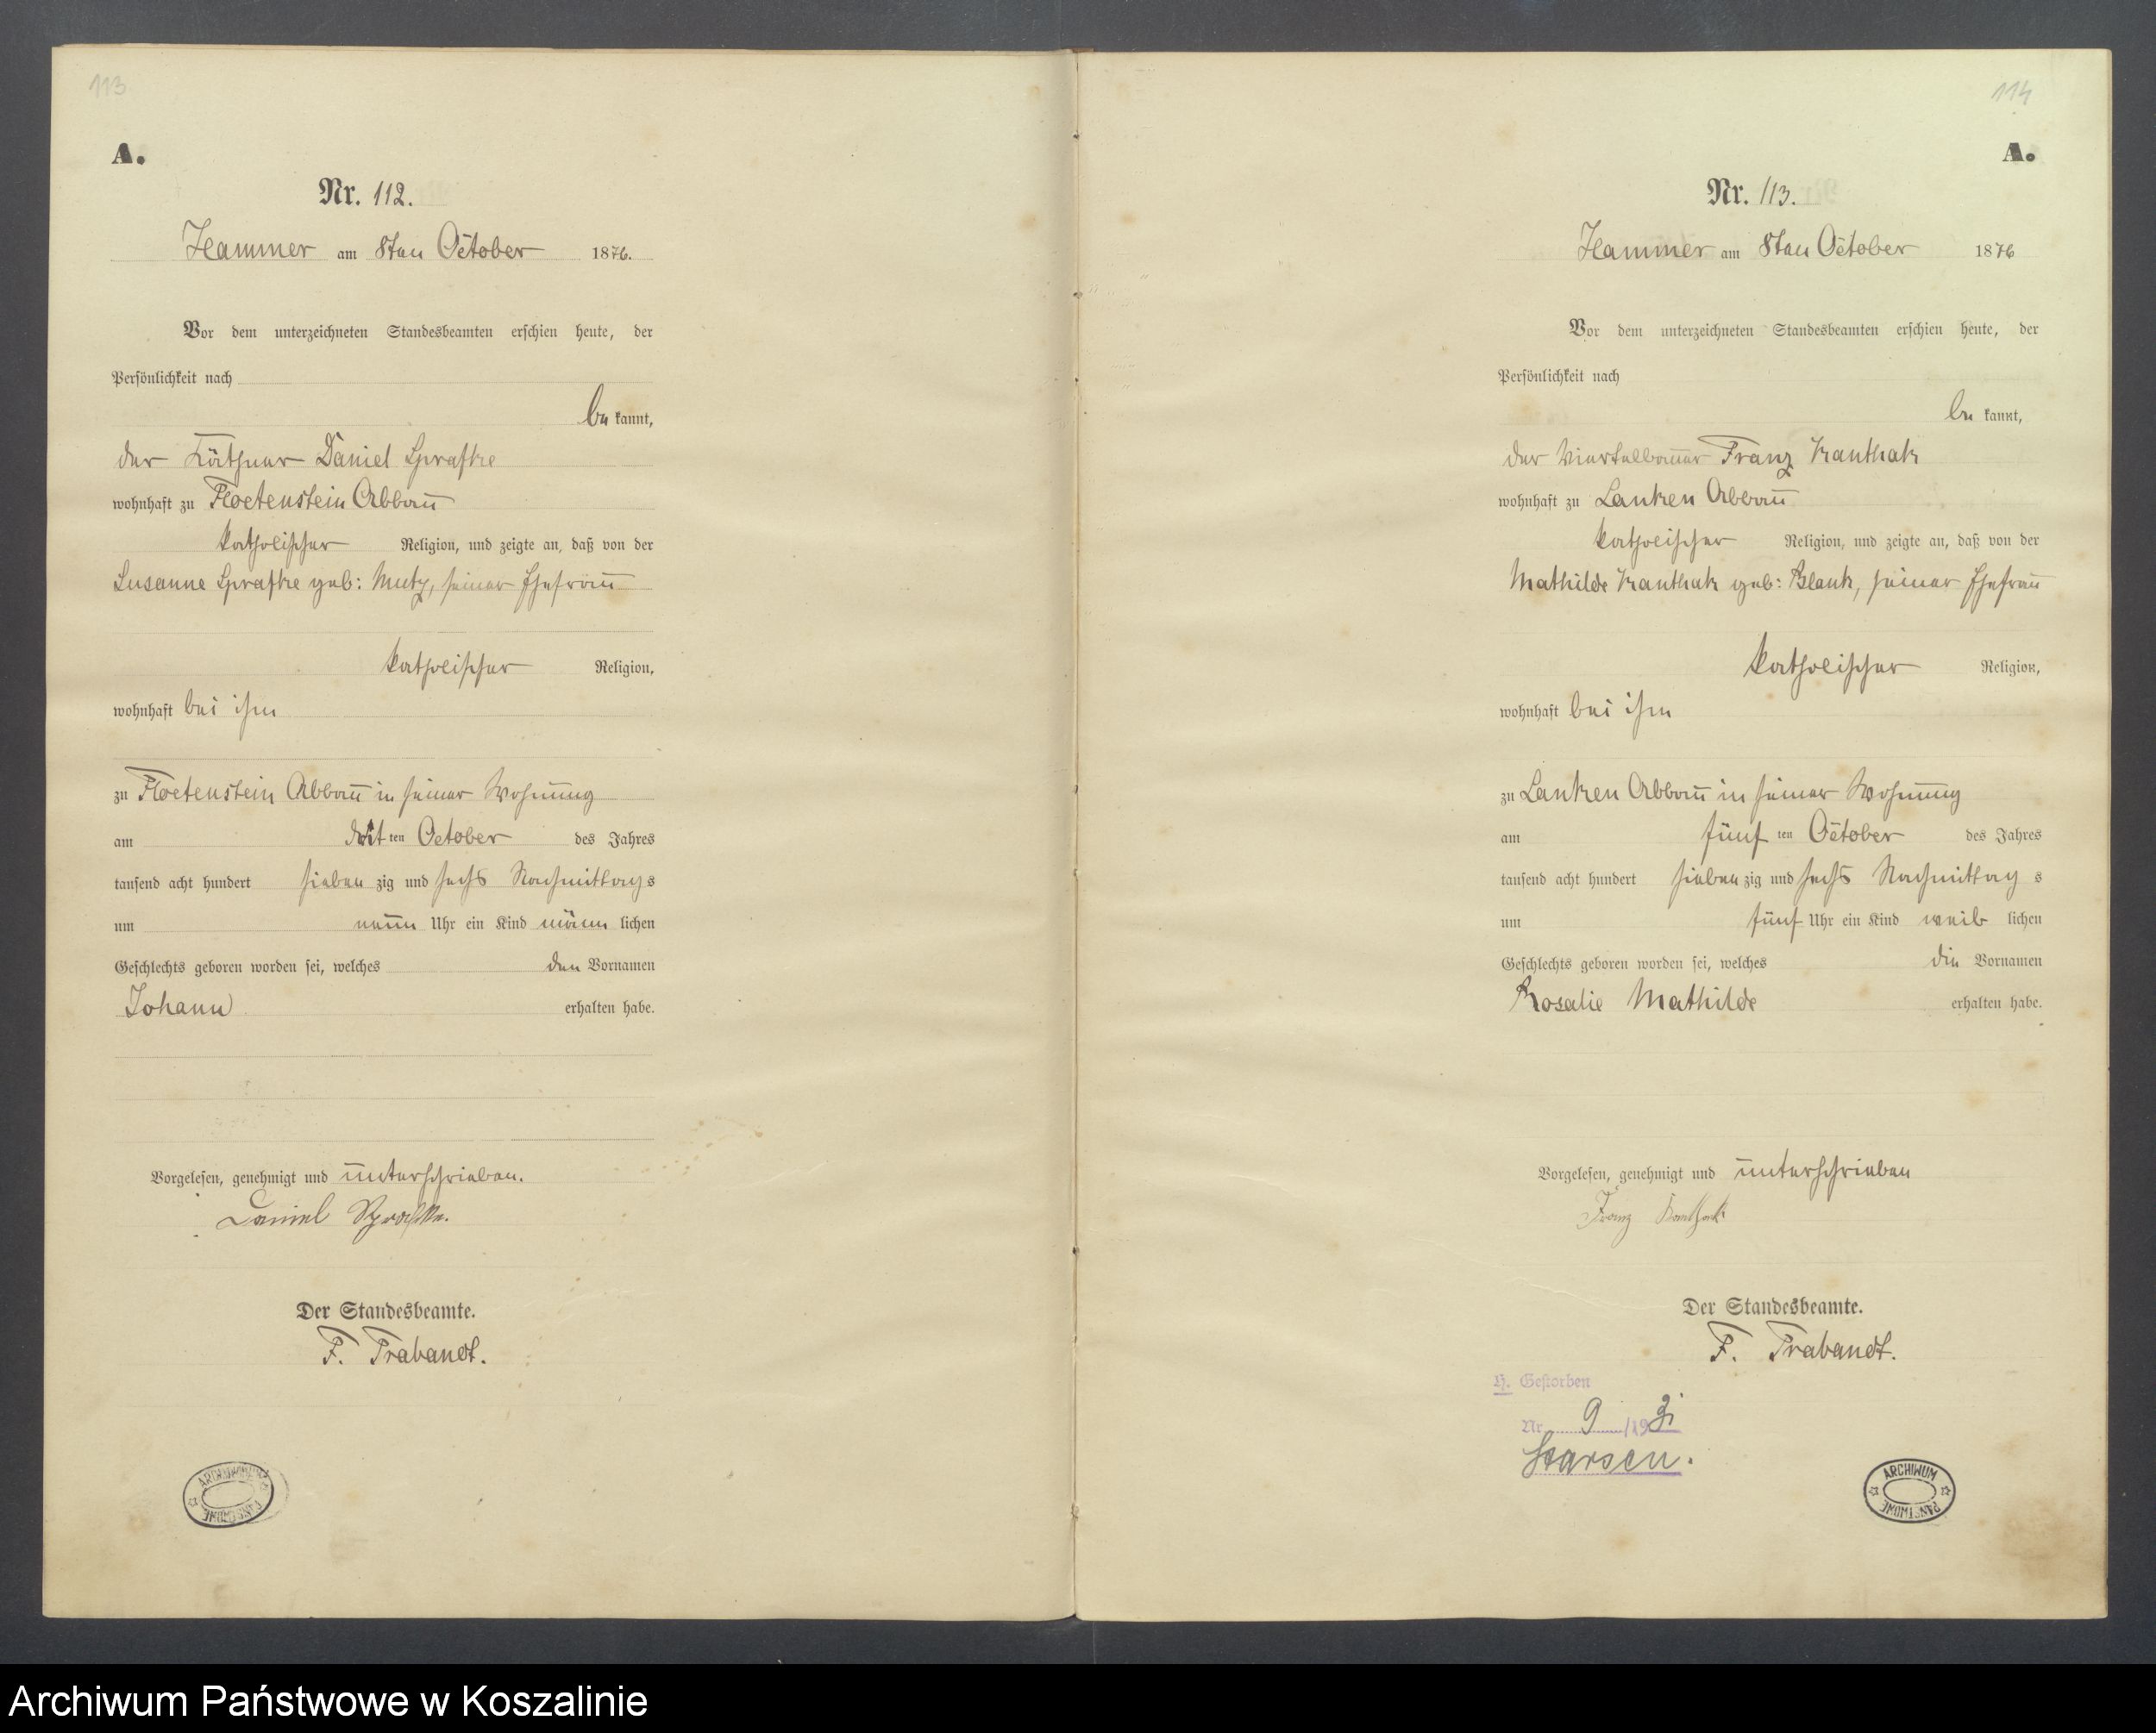 113
A.
Nr. 112.
Hammer am 8ten October 1876.
Vor dem unterzeichneten Standesbeamten erschien heute, der
Persönlichkeit nach
be kannt,
der Käthner Daniel Sprafke
wohnhaft zu Floetenstein Abbau
katholischer Religion, und zeigte an, daß von der
Susanne Sprafke geb: Mutz, seiner Ehefrau
katholischer Religion,
wohnhaft bei ihm
zu Floetenstein Abbau in seiner Wohnung
am drit ten October des Jahres
tausend acht hundert sieben zig und sechs Nachmittags
um neun Uhr ein Kind männ lichen
Geschlechts geboren worden sei, welches den Vornamen
Johann erhalten habe.
Vorgelesen, genehmigt und unterschrieben.
Daniel Sprafke.
Der Standesbeamte.
F. Trabandt.
ARCHIWUM PAŃSTWOWE
114
A.
Nr. 113.
Hammer am 8ten October 1876
Vor dem unterzeichneten Standesbeamten erschien heute, der
Persönlichkeit nach
be kannt,
der Viertelbauer Franz Kanthak
wohnhaft zu Lanken Abbau
katholischer Religion, und zeigte an, daß von der
Mathilde Kanthak geb: Blank, seiner Ehefrau
katholischer Religion,
wohnhaft bei ihm
zu Lanken Abbau in seiner Wohnung
am fünf ten October des Jahres
tausend acht hundert sieben zig und sechs Nachmittag s
um fünf Uhr ein Kind weib lichen
Geschlechts geboren worden sei, welches die Vornamen
Rosalie Mathilde erhalten habe.
Vorgelesen, genehmigt und unterschrieben
Franz Kanthak
Der Standesbeamte.
F. Trabandt.
H. Gestorben
Nr. 9 /193
Starsen.
ARCHIWUM PAŃSTWOWE
Archiwum Państwowe w Koszalinie